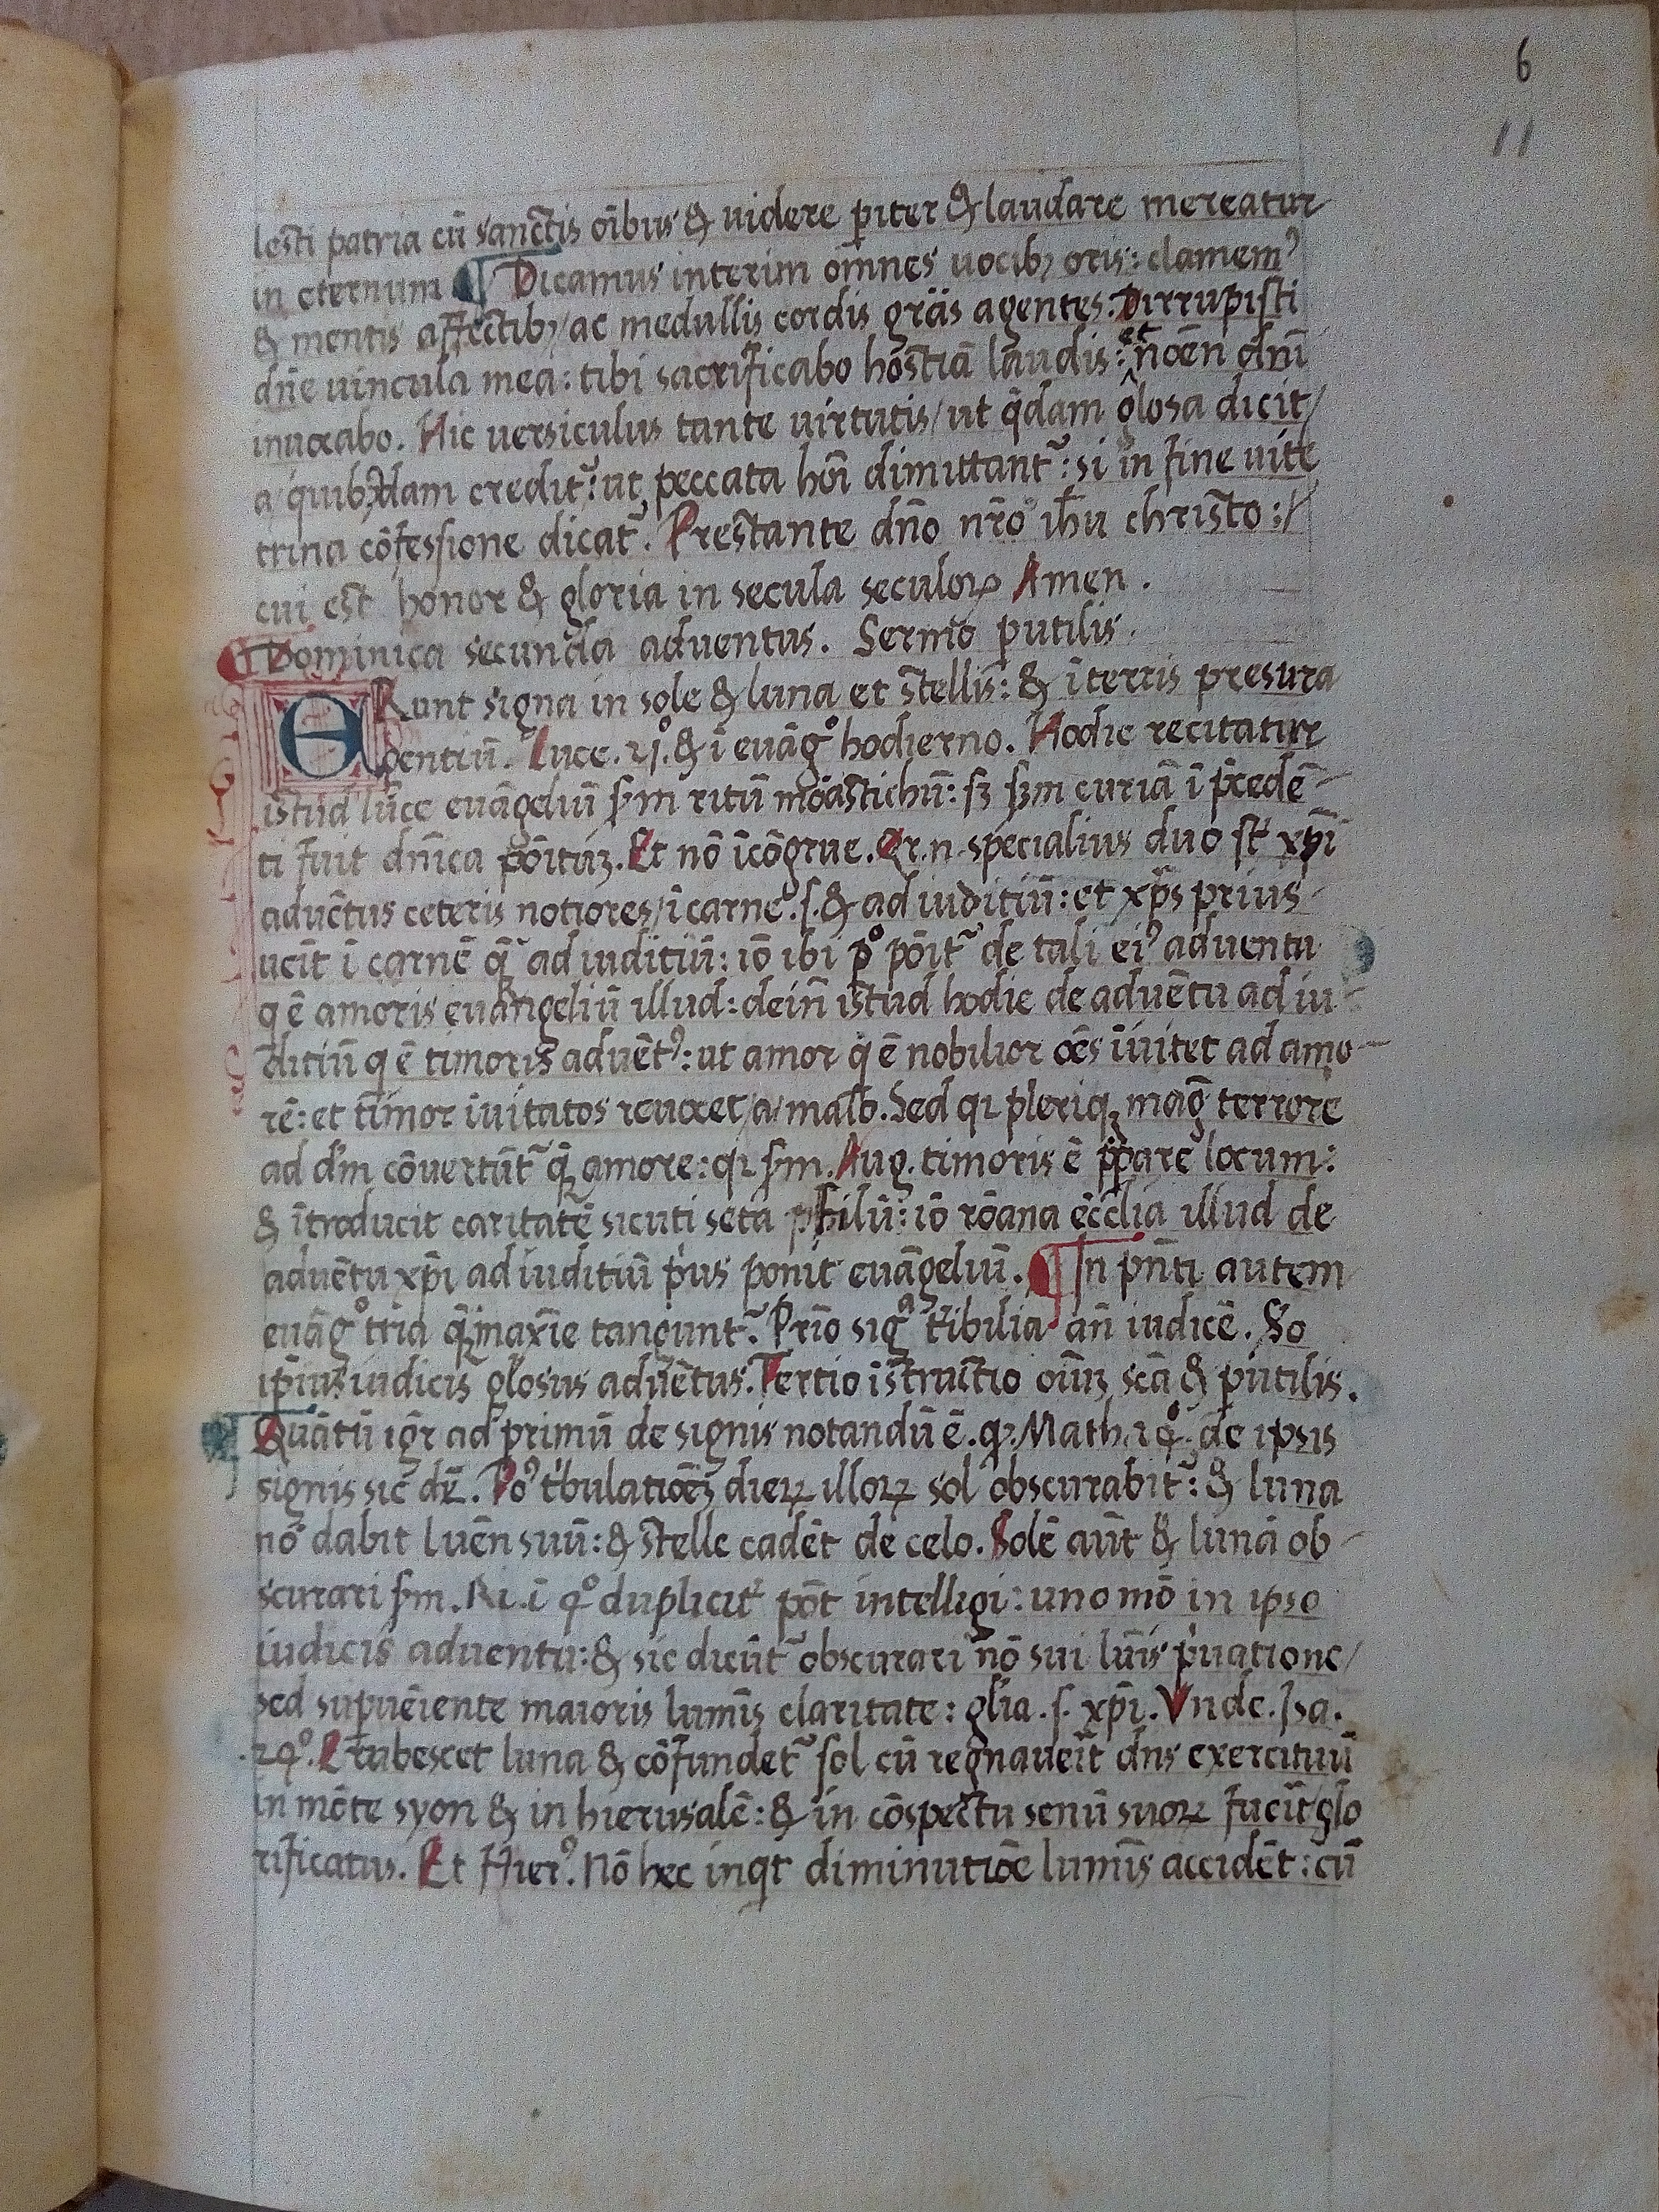 6
11
lesti patria cū sanctis oībus & uidere piter & laudare mereatur
in eternum ¶ Dicamus interim omnes uocibꝫ oris: clamemꝰ
& mentis affectibꝫ / ac medullis cordis grās agentes. Dirrupisti
dn̄e uincula mea: tibi sacrificabo hostiā laudis: et noēn dn̄i
inuocabo. Hic uersiculus tante uirtutis / ut q̄dam glosa dicit /
a quibꝫdam credit᷑: ut peccata hoī dimittant᷑: si in fine uite
trina cōfessione dicat᷑. Prestante dn̄o nr̄o ih̄u christo:/
cui est honor & gloria in secula seculoꝝ Amen.
¶ Dominica secunda aduentus. Sermo putilis.
ERunt signa in sole & luna et stellis: & ī terris presura
gentiū. Luce. 21°. & ī euāg° hodierno. Hodie recitatur
istud luce euāgeliū sm ritū moāstichū: sꝫ sꝫm curiā ī p̄cedē
ti fuit dn̄ica pōituꝫ. Et nō īcōgrue. Qr. n. specialius duo st᷑ xp̄i
aduētus ceteris notiores / ī carnē. s. & ad iuditiū: et xp̄s prius
uēit ī carnē q̄ ad iuditiū: iō ibi p° pōit᷑ de tali eiꝰ aduentu
q ē amoris euangeliū illud: dein̄ istud hodie de aduētu ad iu
ditiū q ē timoris aduētꝰ: ut amor q ē nobilior oēs īuitet ad amo
rē: et timor īuitatos reuocet / a / malo. Sed qꝛ pleriqꝫ maḡ terrore
ad d̄m cōuertūt᷑ q̄ amore: qꝛ sm. Aug. timoris ē p̄parē locum:
& ītroducit caritatē sicuti seta filū: iō rōana ecclīa illud de
aduētu xp̄i ad iuditiū pꝰus ponit euāgeliū. ¶ In pn̄ti autem
euāg° tria q̄ maxīe tangunt᷑. Prīo sigᵃ t᷑ibilia an̄ iudicē. So
ip̄ius iudicis gl̄osus aduētus. Tertio īstructio oīuꝫ scā & putilis.
Quātū igr̄ ad primū de signis notandū ē. qꝛ. Math. 24°. de ipsis
signis sic dꝛ̄. Poꝰ t᷑bulatiōeꝫ dieꝝ illoꝝ sol obscurabit᷑: & luna
nō dabit luēn suū: & stelle cadēt de celo. Solē aūt & lunā ob
scurari sm. Ri. ī 4° duplicit᷑ pōt intelligi: uno mō in ipso
iudicis aduentu: & sic dicūt᷑ obscurari nō sui lūis pꝰuatione /
sed supuēiente maioris lumīs claritate: gl̄ia. s. xp̄i. Vnde. Isa.
.24°. Erubescet luna & cōfundet᷑ sol cū regnauēit dn̄s exercituū
in mōte syon & in hierusalē: & in cōspectu senū suoꝝ fuēit glo
rificatus. Et Hierꝰ. Nō hec inqt diminutiōe lumīs accidēt: cū